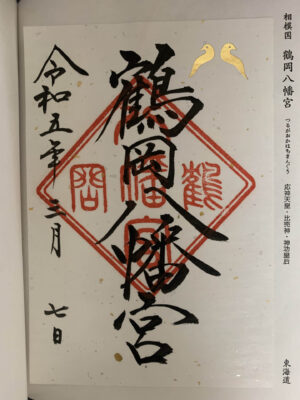 相模国 鶴岡八幡宮 つるがおかはちまんぐう 応神天皇・比売神・神功皇后 東海道
鶴岡八幡宮
令和五年三月 七日